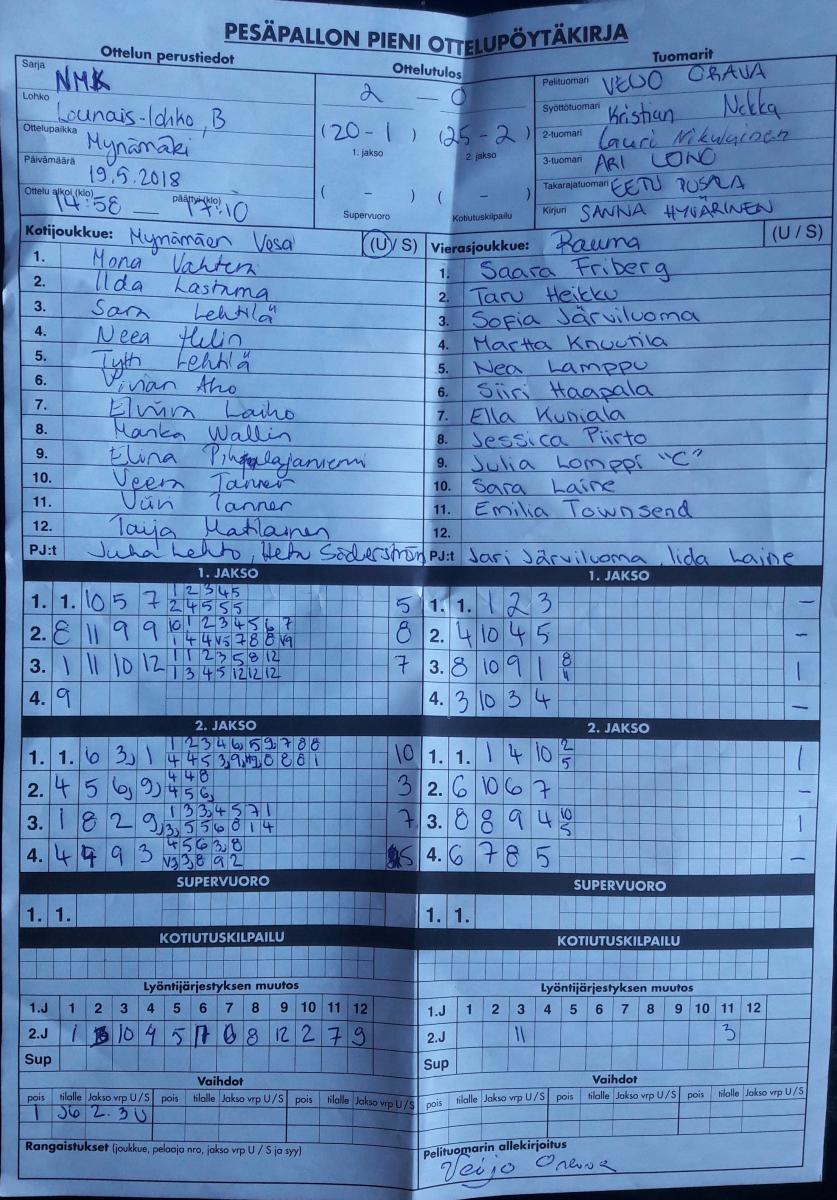 PESÄPALLON PIENI OTTELUPÖYTÄKIRJA
Ottelun perustiedot
Ottelutulos
Tuomarit
Sarja NMK
Lohko Lounais-lohko, B
Ottelupaikka Mynämäki
Päivämäärä 19.5.2018
Ottelu alkoi (klo) 14:58 — päättyi (klo) 17:10
2 — 0
(20 - 1) (25 - 2)
1. jakso 2. jakso
( - ) ( - )
Supervuoro Kotiutuskilpailu
Pelituomari VEIJO ORAVA
Syöttötuomari Kristian Nokka
2-tuomari Lauri Nikulainen
3-tuomari ARI LONO
Takarajatuomari EETU PUSALA
Kirjuri SANNA HYVÄRINEN
Kotijoukkue: Mynämäen Vesa (U / S)
1. Mona Vahtera
2. Iida Lastuma
3. Sara Lehtilä
4. Neea Helin
5. Tytti Lehtilä
6. Vivian Aho
7. Elviira Laiho
8. Manka Wallin
9. Elina Pihlajaniemi
10. Veera Tanner
11. Viivi Tanner
12. Taija Matilainen
PJ:t Juha Lehto, Heta Söderström
Vierasjoukkue: Rauma (U / S)
1. Saara Friberg
2. Taru Heikku
3. Sofia Järviluoma
4. Martta Knuutila
5. Nea Lamppu
6. Siiri Haapala
7. Ella Kuniala
8. Jessica Piirto
9. Julia Lomppi "C"
10. Sara Laine
11. Emilia Townsend
12.
PJ:t Jari Järviluoma, Iida Laine
1. JAKSO
1. 1. 10 5 7 1 2 3 4 5 5
2 4 5 5 5
2. 8 11 9 9 10 1 2 3 4 5 6 7 8
1 4 4 V5 7 8 8 V9
3. 1 11 10 12 1 1 2 3 5 8 12 7
1 3 4 5 12 12 12
4. 9
1. JAKSO
1. 1. 1 2 3 –
2. 4 10 4 5 –
3. 8 10 9 1 8 1
4. 3 10 3 4 –
2. JAKSO
1. 1. 6 3, 1 10
2. 4 5 6, 9, 4 4 8 3
4 5 6,
3. 1 8 2 9, 1 3 3, 4 5 7 1 7
3, 5 5 6 8 1 4
4. 4 9 9 3 4 5 6 3, 8 5
V3 3, 8 9 2
2. JAKSO
1. 1. 1 4 10 2 1
5
2. 6 10 6 7 –
3. 8 8 9 4 10 1
5
4. 6 7 8 5 –
SUPERVUORO
1. 1.
SUPERVUORO
1. 1.
KOTIUTUSKILPAILU
KOTIUTUSKILPAILU
Lyöntijärjestyksen muutos
1.J 1 2 3 4 5 6 7 8 9 10 11 12
2.J 1 3 10 4 5 11 6 8 12 2 7 9
Sup
Lyöntijärjestyksen muutos
1.J 1 2 3 4 5 6 7 8 9 10 11 12
2.J 11 3
Sup
Vaihdot
pois tilalle Jakso vrp U / S pois tilalle Jakso vrp U / S pois tilalle Jakso vrp U / S
1 J6 2. 3 U
Vaihdot
pois tilalle Jakso vrp U / S pois tilalle Jakso vrp U / S pois tilalle Jakso vrp U / S
Rangaistukset (joukkue, pelaaja nro, jakso vrp U / S ja syy)
Pelituomarin allekirjoitus
Veijo Orava